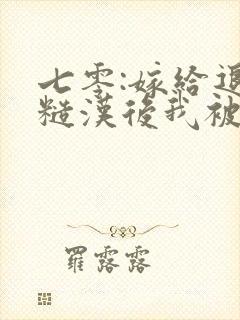 七零:嫁給退
糙漢後我被
羅露露